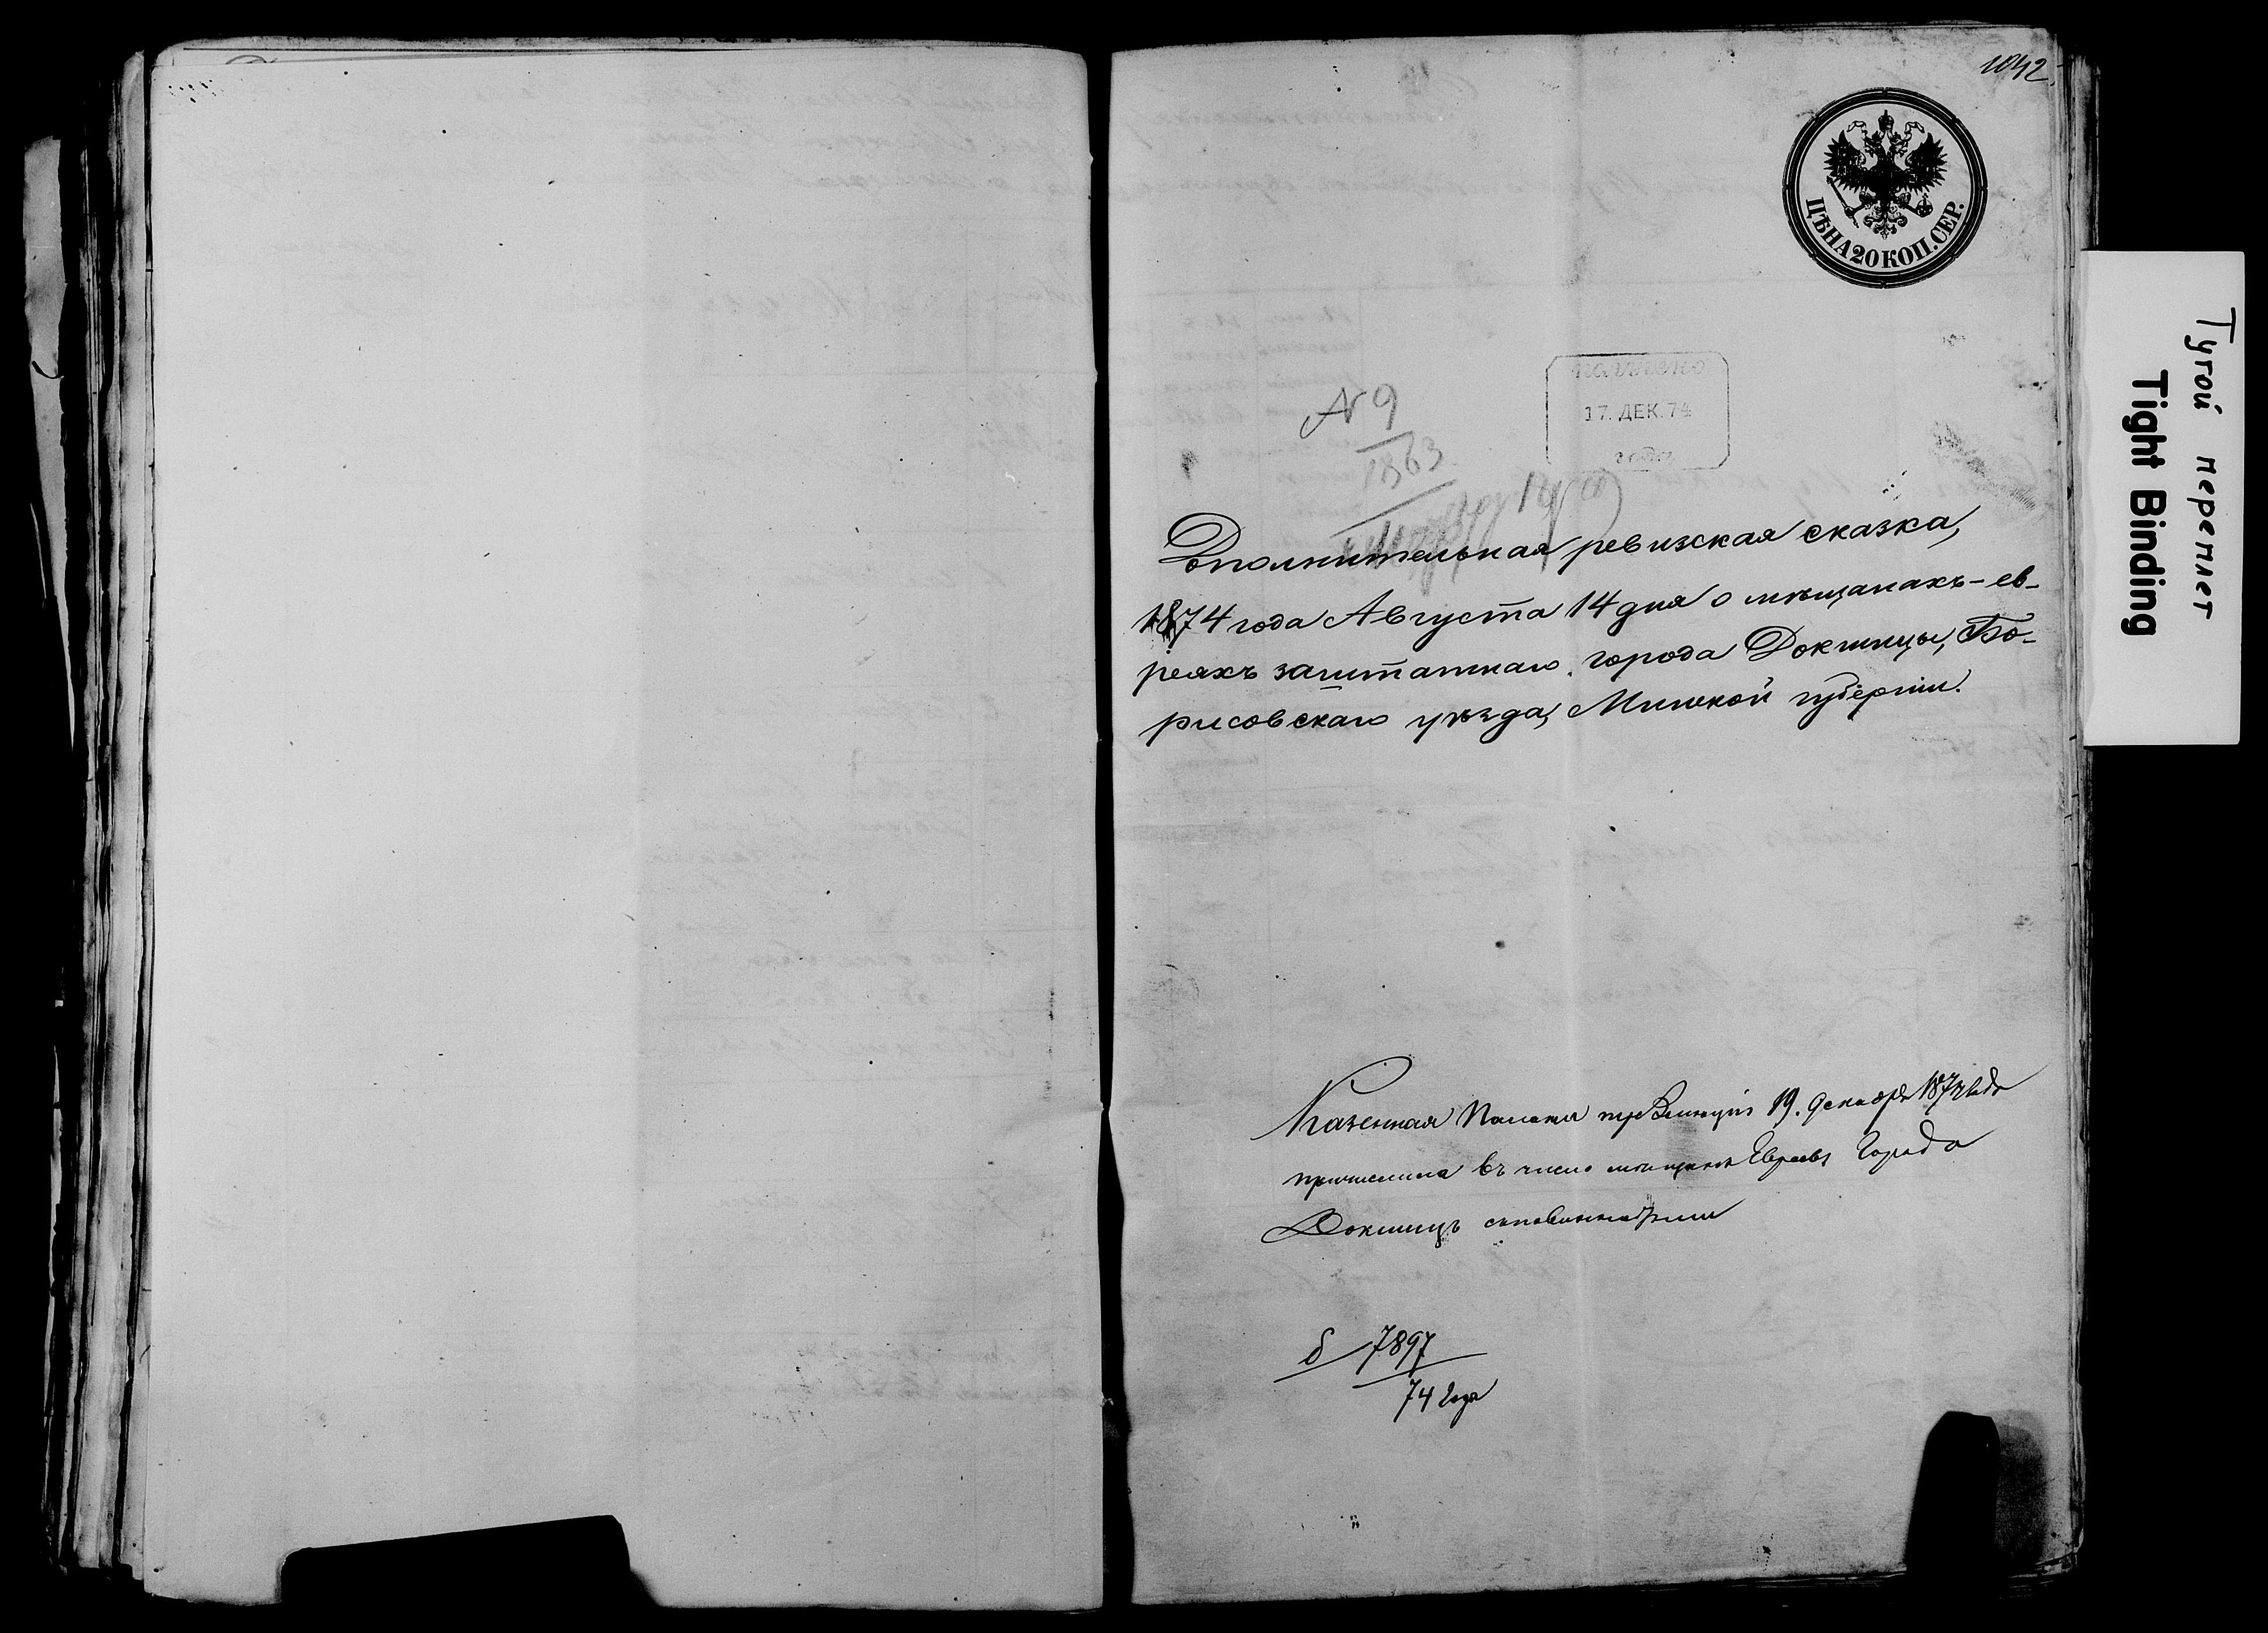 1042
ЦѢНА 20 КОП. СЕР.
получено
17. ДЕК. 74
года
№ 9
1863
Дополнительная ревизская сказка,
1874 года Августа 14 дня о мѣщанахъ-ев-
реяхъ заштатнаго города Докшицы, Бо-
рисовскаго уѣзда, Минской губерніи.
Казенная Палата 19. декабря 1874 года
причислила въ число мѣщанъ Евреевъ Города
Докшицъ
б 7897
74 года
Тугой переплет
Tight Binding